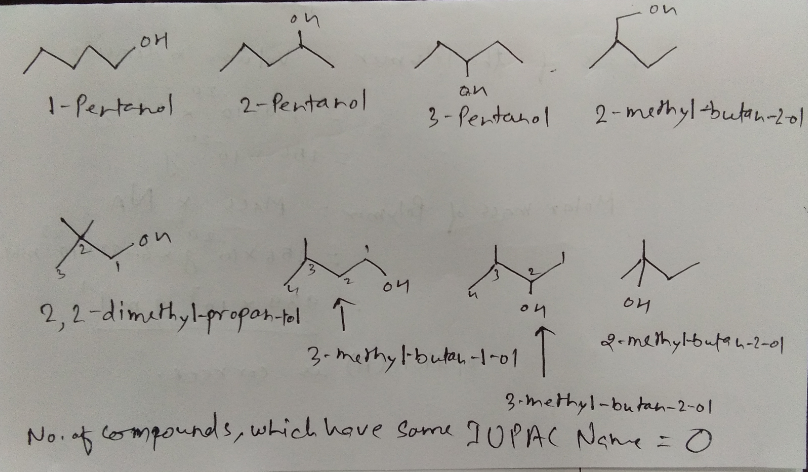 OH
OH
OH
OH
1-Pentanol
2-Pentanol
3-Pentanol
2-methyl-butan-2-ol
OH
2
1
3
3
1
4
2
OH
3
2
1
4
OH
OH
2,2-dimethyl-propan-1ol
3-methyl-butan-1-ol
2-methyl-butan-2-ol
3-methyl-butan-2-ol
No. of compounds, which have same IUPAC Name = 0